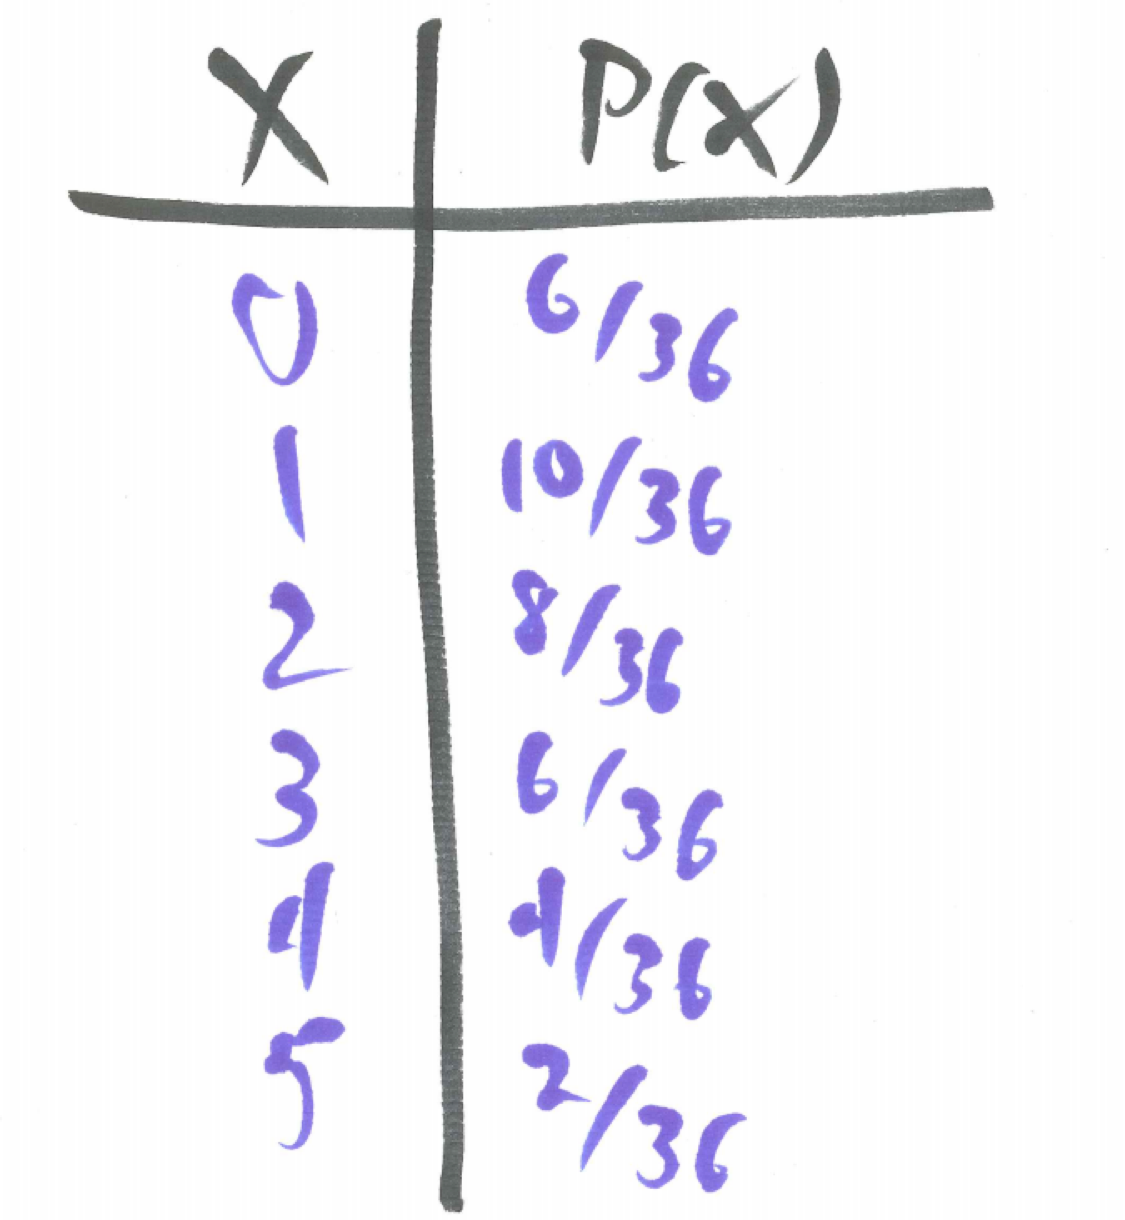 X P(X)
0 6/36
1 10/36
2 8/36
3 6/36
4 4/36
5 2/36